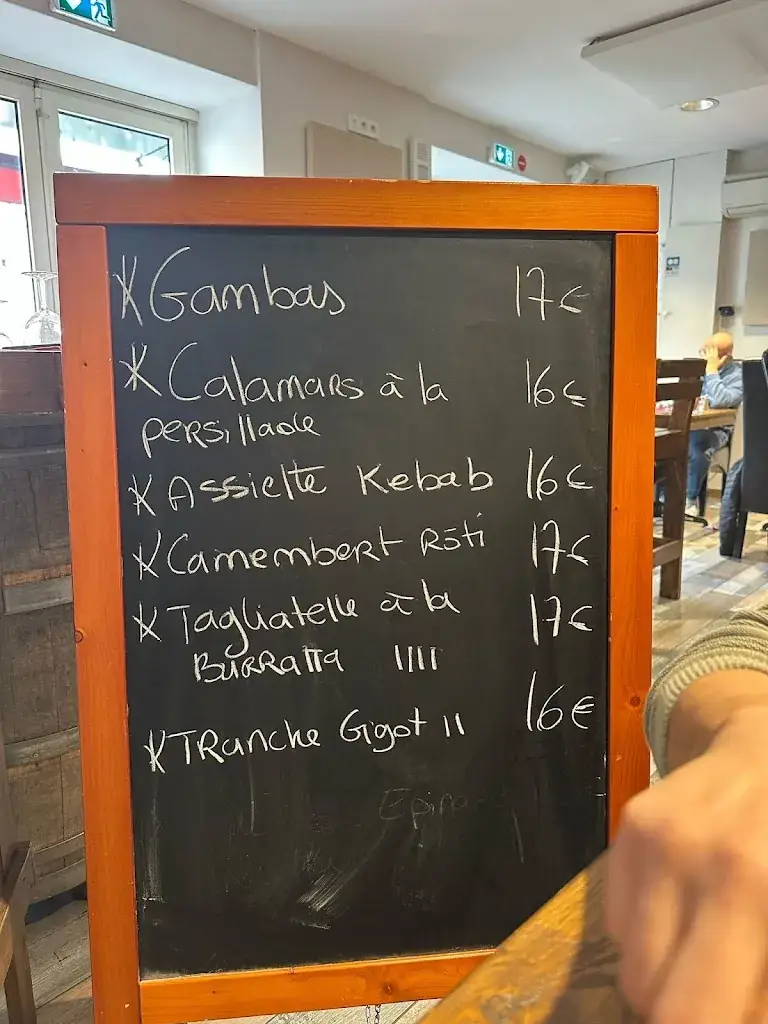 * Gambas 17€
* Calamars à la 16€
persillade
* Assiette Kebab 16€
* Camembert Rôti 17€
* Tagliatelle à la 17€
BURRATTA IIII
* TRanche Gigot II 16€